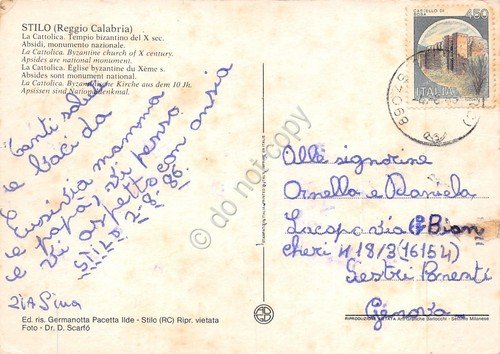 STILO (Reggio Calabria)
La Cattolica. Tempio bizantino del X sec.
Absidi, monumento nazionale.
La Cattolica. Byzantine church of X century.
Apsides are national monument.
La Cattolica. Église byzantine du Xème s.
Absides sont monument national.
La Cattolica. Byzantinische Kirche aus dem 10 Jh.
Apsissen sind Nationaldenkmal.
Tanti saluti
e baci da
Eusivia mamma
e papà, vi penso
e vi aspetto con ansia
STILO 2-8-86.
ZIA Pina
Ed. ris. Germanotta Pacetta Ilde - Stilo (RC) Ripr. vietata
Foto - Dr. D. Scarfò
CASTELLO DI
450
ITALIA
Alle signorine
Ornella e Daniela
Lacapavia Bian
cheri N 18/3 (16154)
Sestri Ponenti
Genova
RIPRODUZIONE VIETATA
do not copy